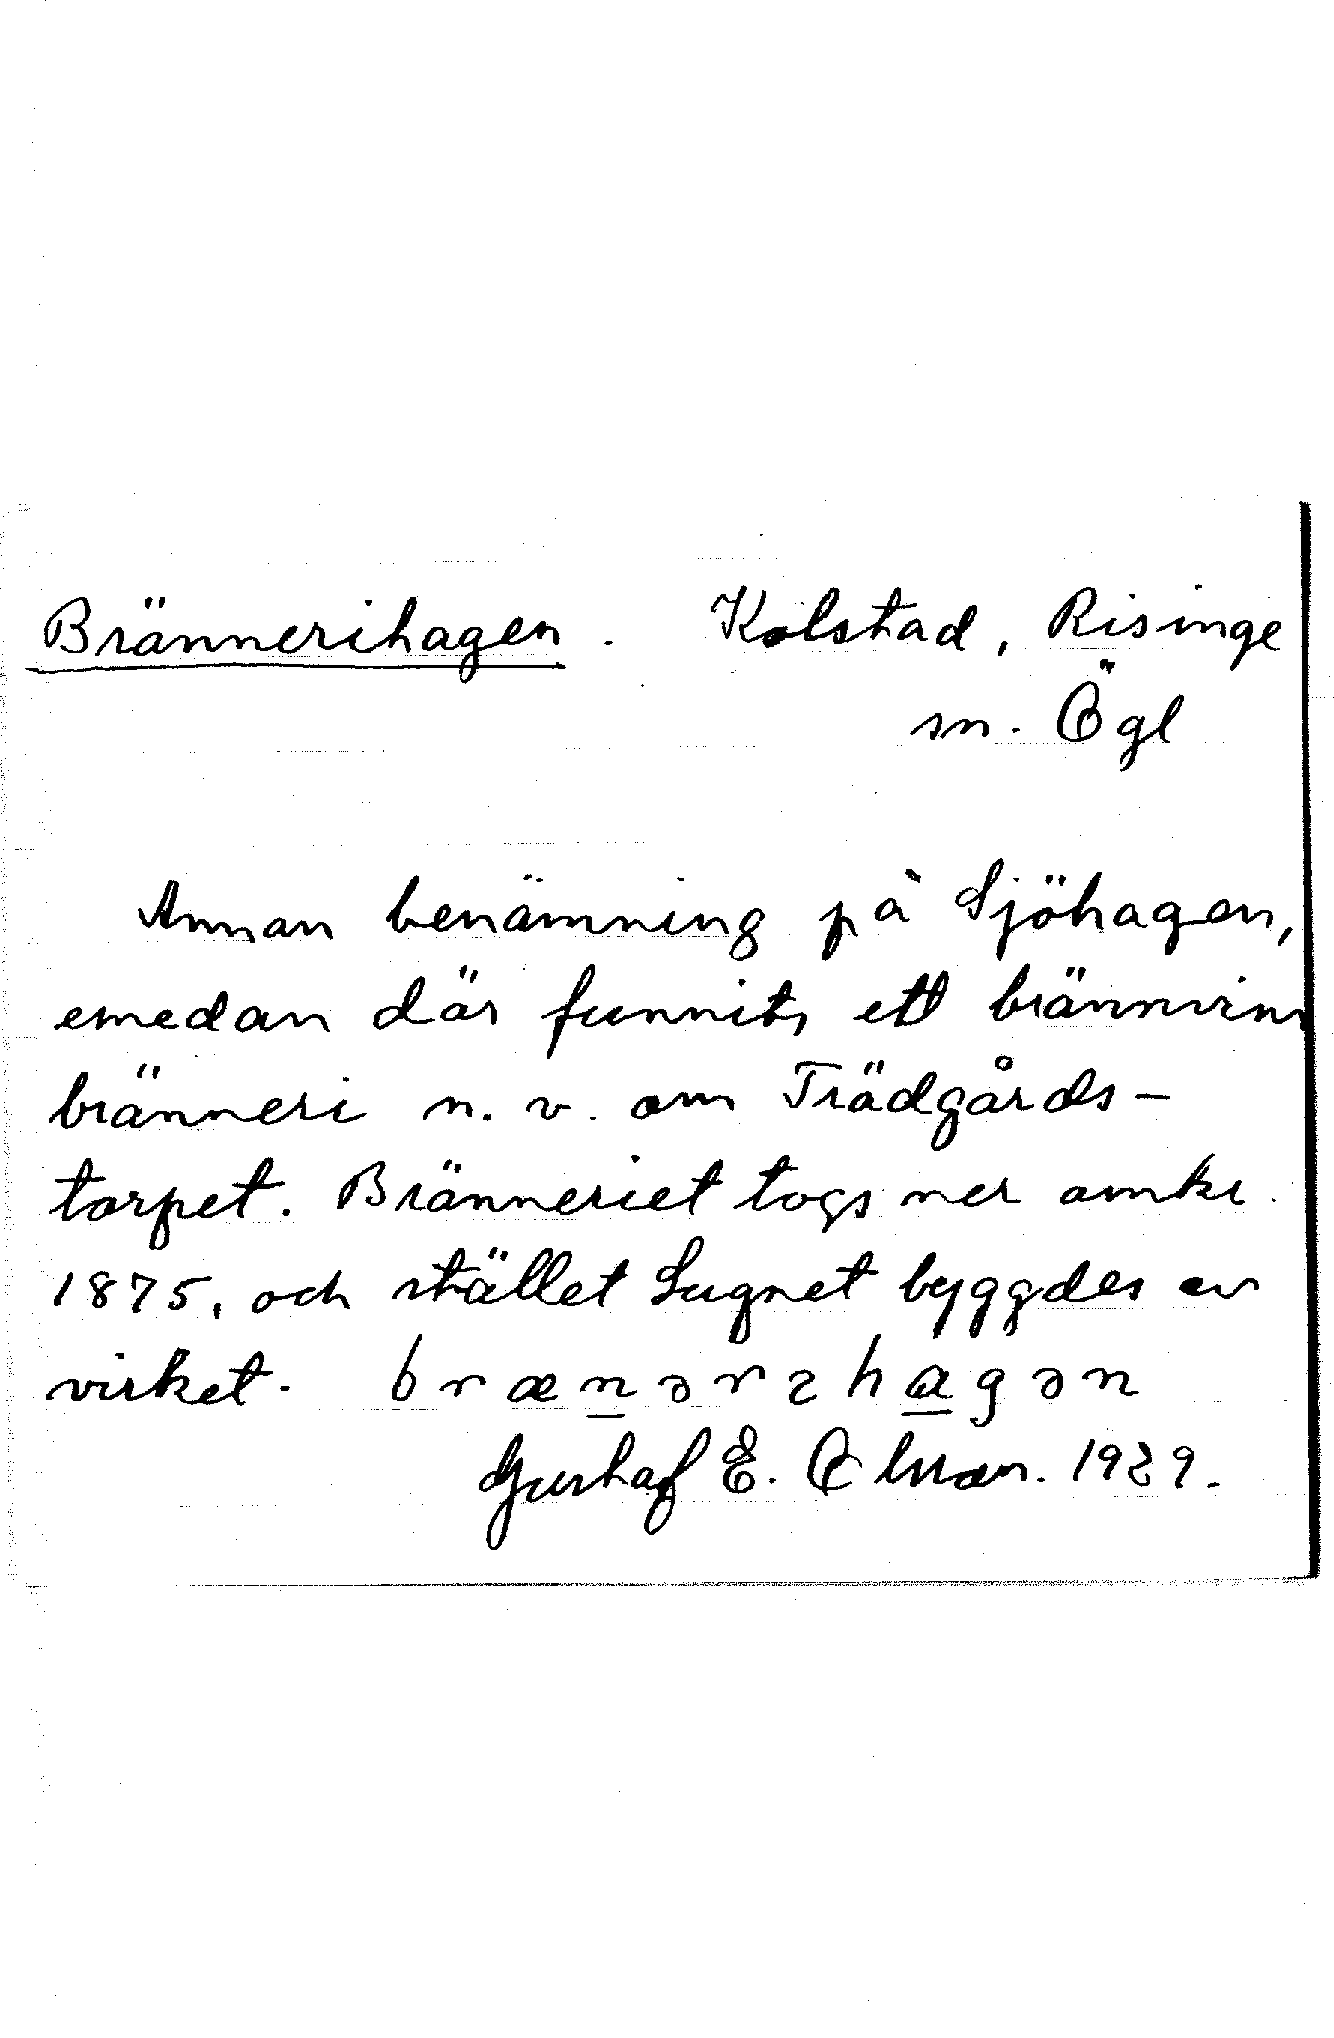 Brännerihagen. Kolstad, Risinge
sn. Ögl
Annan benämning på Sjöhagen,
emedan där funnits ett brännvins
bränneri n. v. om Trädgårds-
torpet. Bränneriet togs ner omkr.
1875, och stället Lugnet byggdes av
virket. brænərɿhagən
Gustaf E. 1929.